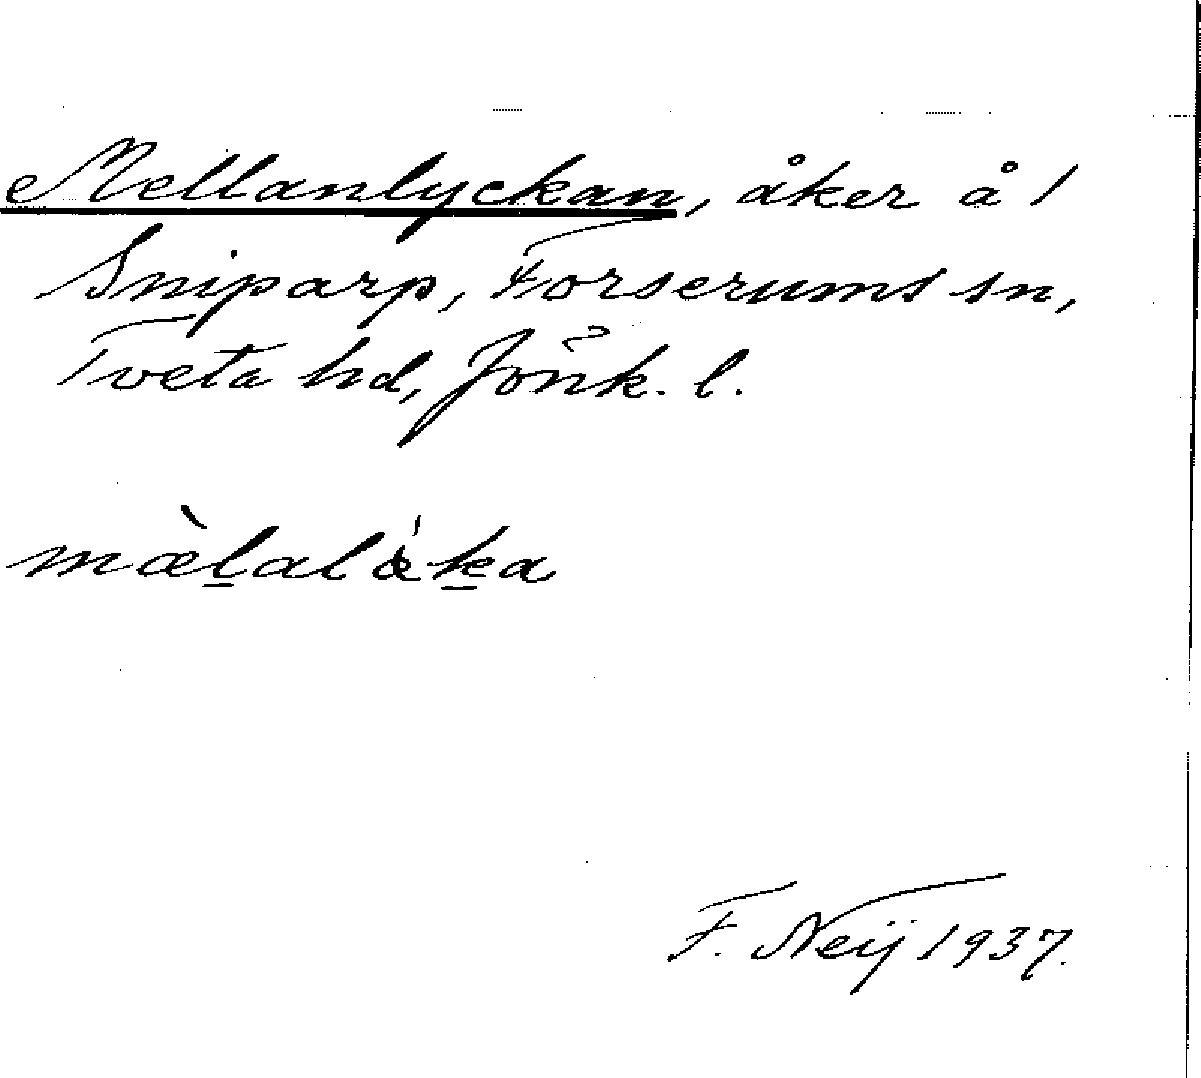 Mellanlyckan, åker å 1
Sniparp, Forserums sn,
Tveta hd, Jönk. l.
mæ̀l̲alǿk̲a
F. Neij 1937.